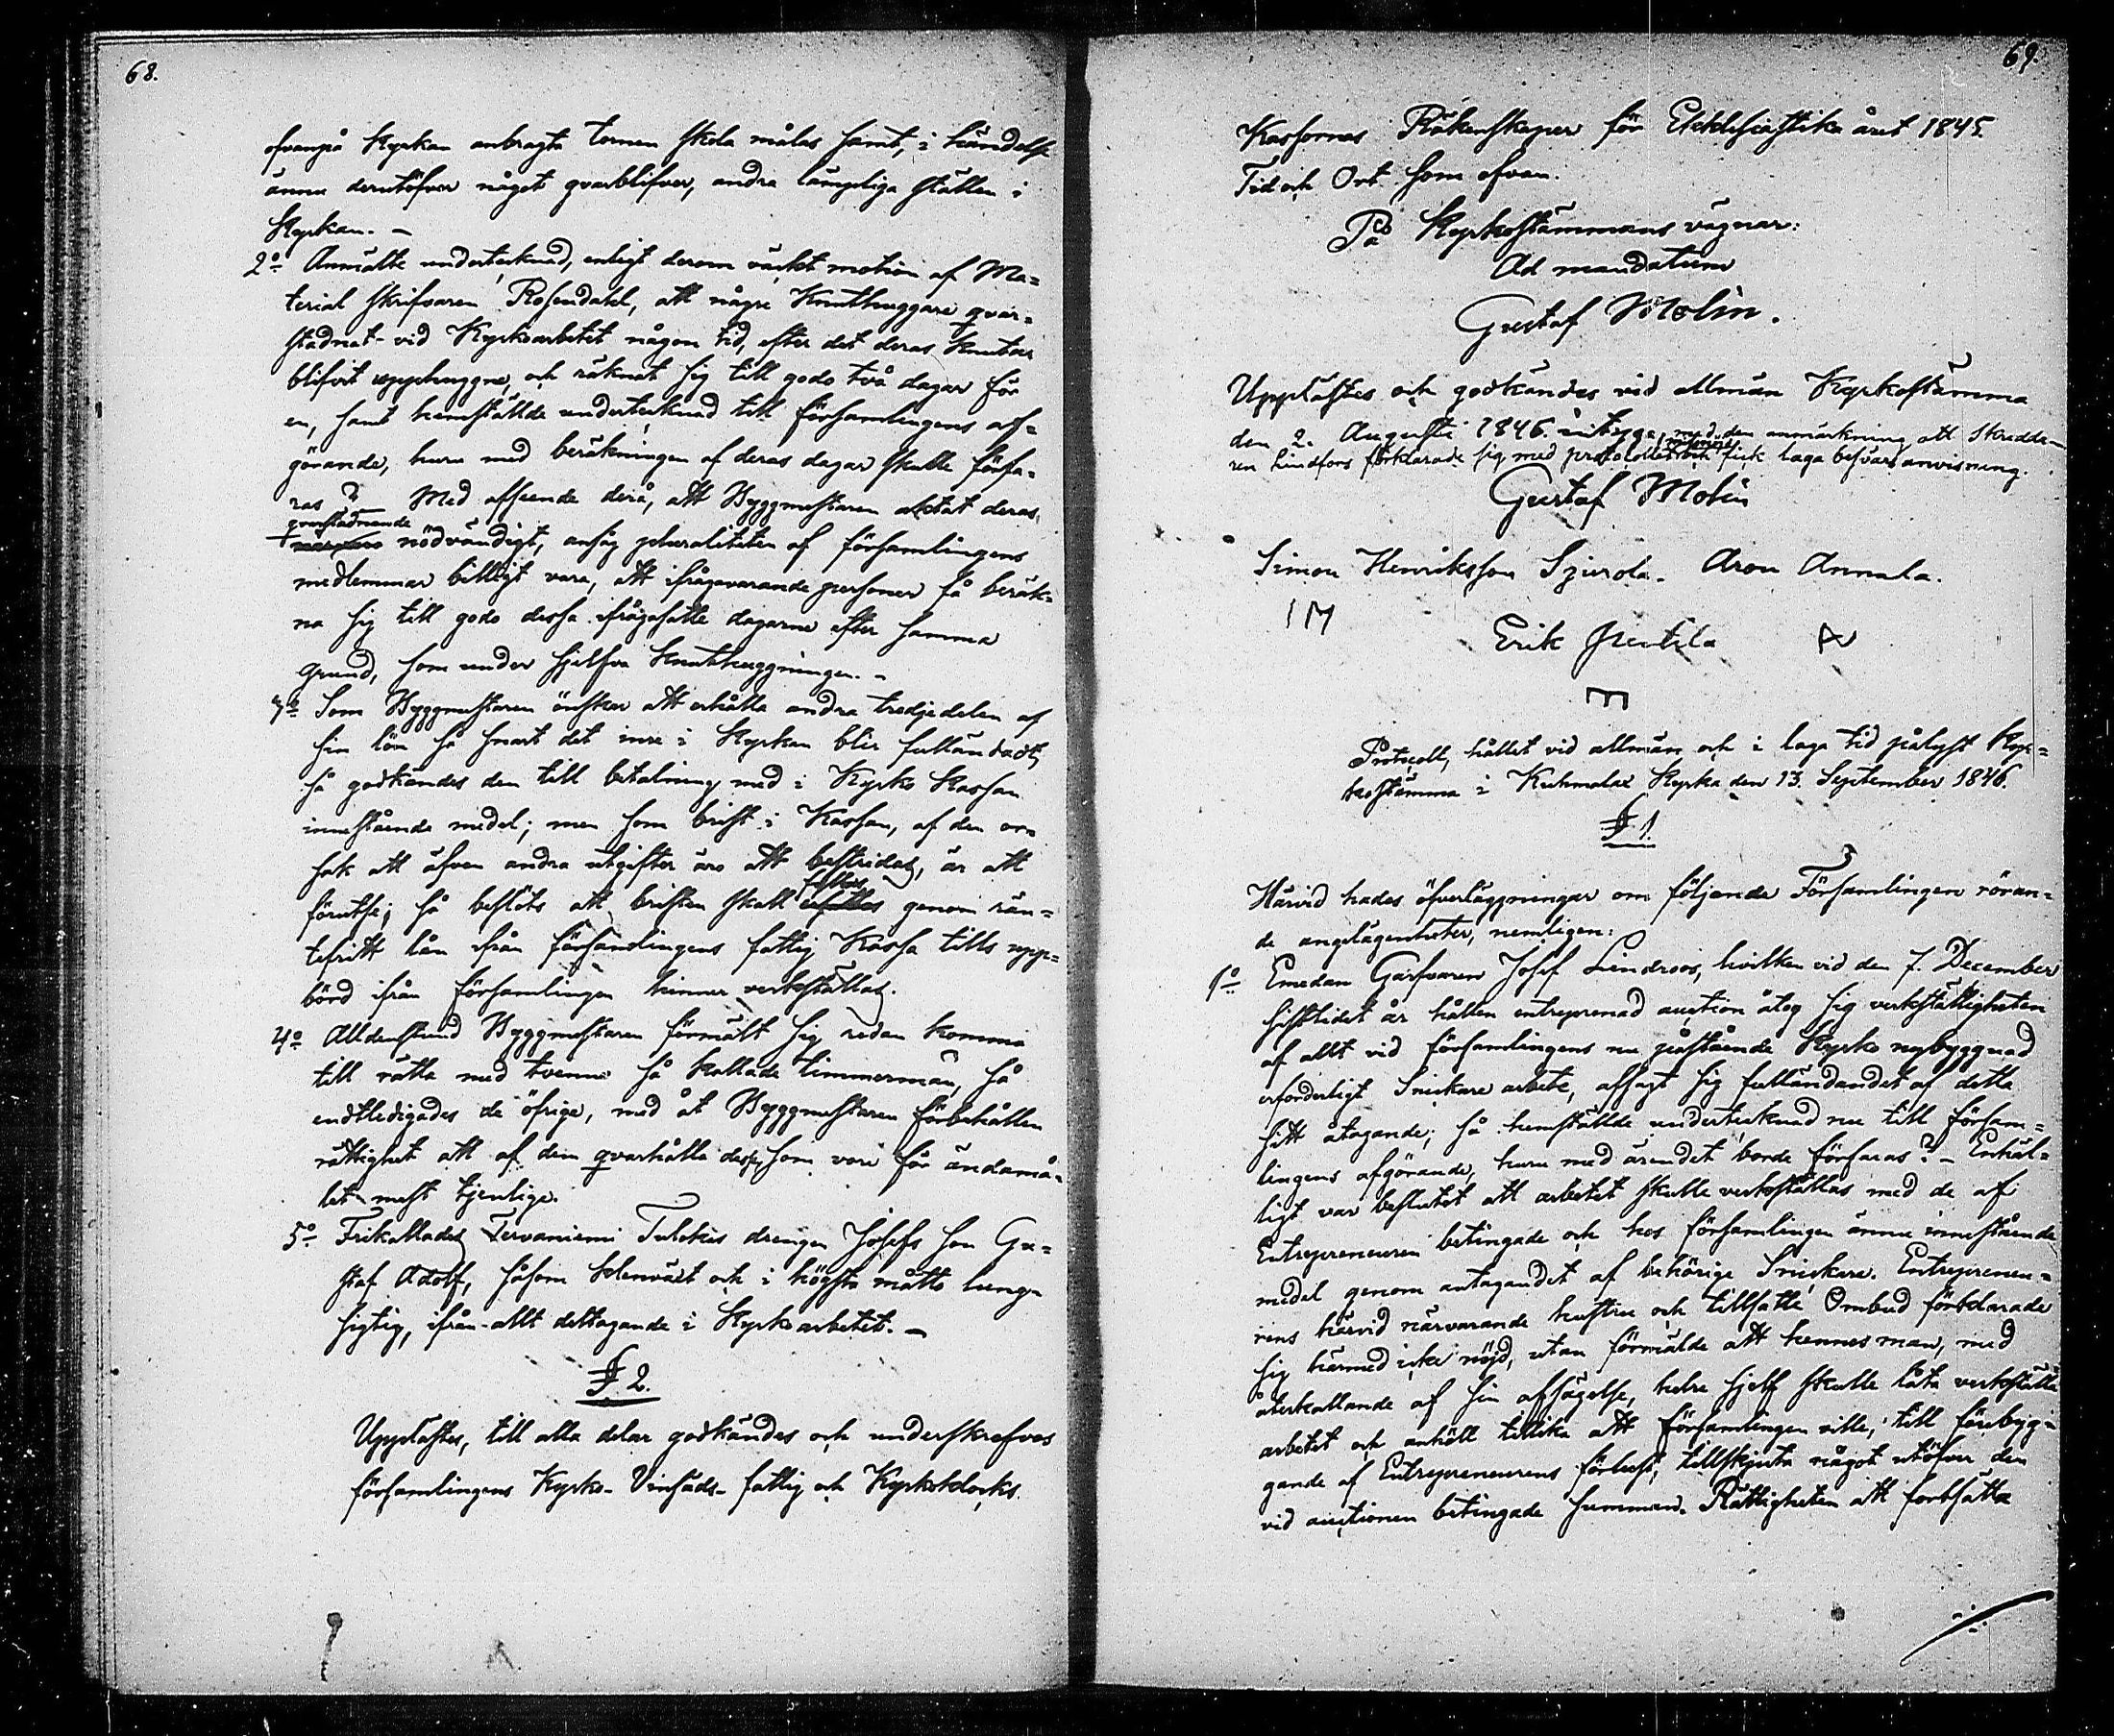 68.
ofvanpå Kyrkan anbragta tornen skola målas samt, i händelse
ännu derutöfver något qvarblifver, andra lämpliga ställen i
Kyrkan. –
2o Anmälte undertecknad, enligt derom väckt motion af Ma=
terial skrifvaren Rosendahl, att någre Knuthuggare qvar=
stadnat vid Kyrkoarbetet någon tid, efter det deras knutar
blifvit upphuggne, och räknat sig till godo två dagar för
en, samt hemställde undertecknad till församlingens af=
görande, huru med beräkningen af deras dagar skulle förfa=
ras? Med afseende derå, att Byggmästaren aktat deras
qvarstadnande
nödvändigt, ansåg pluraliteten af församlingens
medlemmar billigt vara, att ifrågavarande personer få beräk=
na sig till godo dessa ifrågasatte dagarne efter samma
grund, som under sjelfva knuthuggningen. –
3o Som Byggmästaren önskar att erhålla andra tredjedelen af
sin lön så snart det inre i Kyrkan blir fulländadt,
så godkändes den till betalning med i Kyrko Kassan
innestående medel; men som brist i Kassan, af den or=
sak att äfven andra utgifter äro att bestridas, är att
fyllas
förutse; så beslöts att bristen skall genom rän=
tefritt lån från församlingens fattig Kassa tills upp=
börd ifrån församlingen hinner verkställas.
4o Alldenstund Byggmästaren förmält sig redan komma
till rätta med tvenne så kallade timmermän, så
endtledigades de öfrige, med åt Byggmästaren förbehållen
rättighet att af dem qvarhålla dessa, som vore för ändamå=
let mest tjenlige.
5o Frikallades Tervaniemi Tulokis drengen Josefs son Gu=
staf Adolf, såsom klenväxt och i högsta måtto lung=
sigtig, ifrån allt deltagande i Kyrkoarbetet. –
§ 2.
Upplästes, till alla delar godkändes och underskrefvos
församlingens Kyrko- Vinsäds- fattig och Kyrkoklocks
69.
Kassornas Räkenskaper för Ecklesiastika året 1845.
Tid och Ort som ofvan.
På Kyrkostämmans vägnar:
Ad mandatum
Gustaf Molin.
Upplästes och godkändes vid allmän Kyrkostämma
den 2. Augusti 1846. intyga, med den anmärkning att Skredda=
ren Lindfors förklarade sig med protocollet och fick laga besvärs anvisning.
Gustaf Molin
Simon Henriksson Sjurola. Aron Annala.
Erik Penttila
Protocoll, hållet vid allmän och i laga tid pålyst Kyr=
kostämma i Kuhmalax Kyrka den 13. September 1846.
§ 1.
Härvid hades öfverläggningar om följande Församlingen röran=
de angelägenheter, nemligen:
1o Emedan Garfvaren Josef Lindroos, hvilken vid den 7. December
sistlidet år hållen entreprenad auction åtog sig verkställigheten
af allt vid församlingens nu påstående Kyrko nybyggnad
erforderligt Snickare arbete, afsagt sig fulländandet af detta
sitt åtagande; så hemställde undertecknad nu till försam=
lingens afgörande, huru med ärendet borde förfaras? – Enhäl=
ligt var beslutet att arbetet skulle verkställas med de af
Entrepreneuren betingade och hos församlingen ännu innestående
medel genom antagandet af behörige Snickare. Entrepreneu=
rens härvid närvarande hustru och tillsatte Ombud förklarade
sig härmed icke nöjd, utan förmälde att hennes man, med
återkallande af sin afsägelse, helre sjelf skulle låta verkställa
arbetet och anhöll tillika att församlingen ville, till förebyg=
gande af Entrepreneurens förlust, tillskjuta något utöfver den
vid auctionen betingade summan. Rättigheten att fortsätta